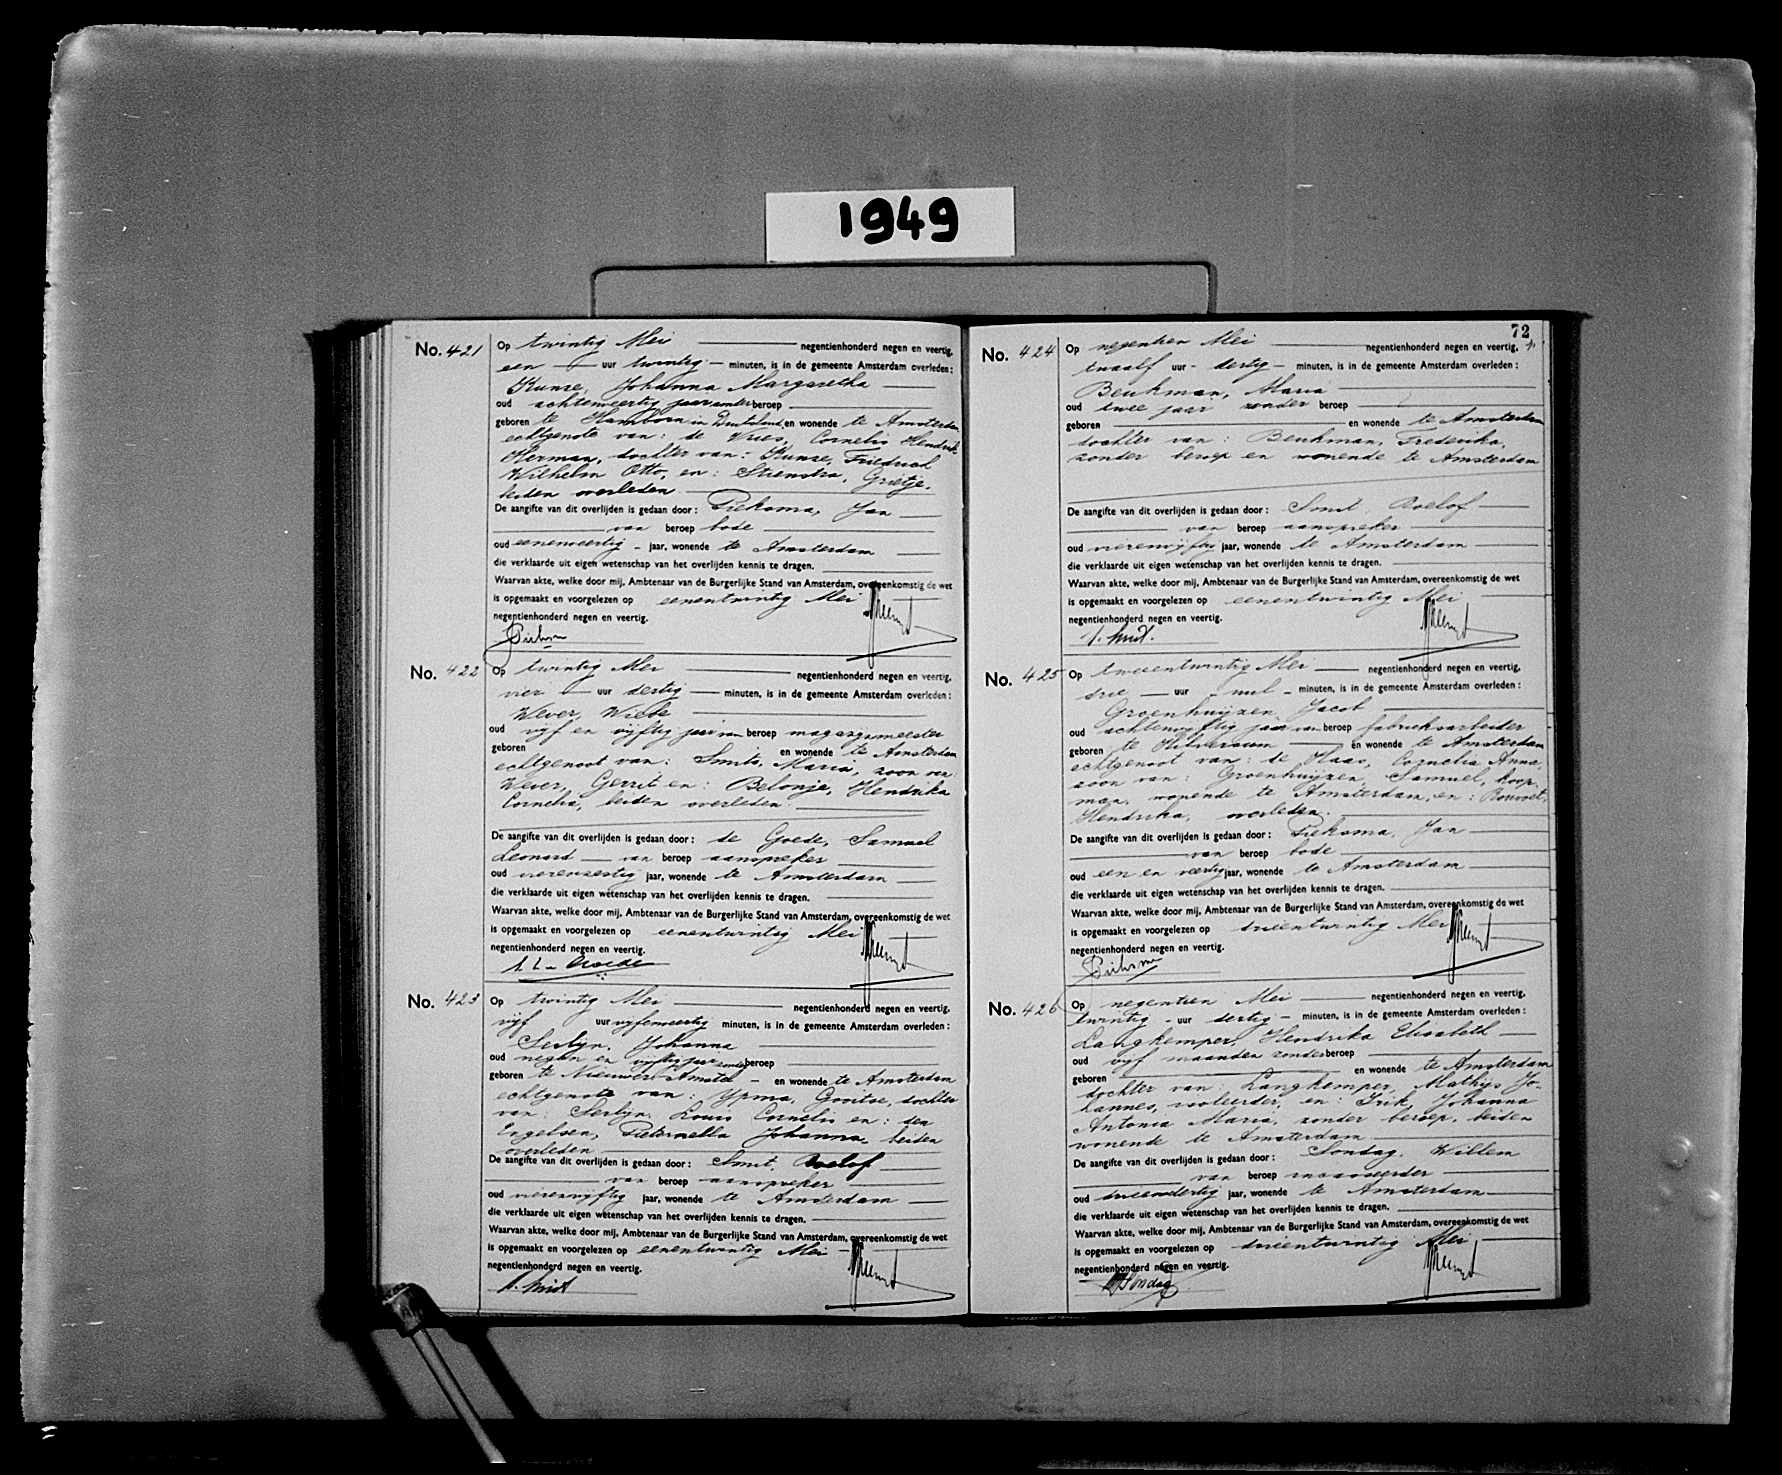 1949
No. 421
Op twintig Mei negentienhonderd negen en veertig,
een uur twintig minuten, is in de gemeente Amsterdam overleden:
Kunse, Johanna Margaretha
oud achtenveertig jaar zonder beroep
geboren te Hamborn in Duitsland en wonende te Amsterdam
echtgenote van: de Vries, Cornelis Hendrik
Herman, dochter van: Kunse, Friedrich
Wilhelm Otto, en: Stienstra, Grietje,
beiden overleden
De aangifte van dit overlijden is gedaan door: Pieksma, Jan
van beroep bode
oud eenenveertig jaar, wonende te Amsterdam
die verklaarde uit eigen wetenschap van het overlijden kennis te dragen.
Waarvan akte, welke door mij, Ambtenaar van de Burgerlijke Stand van Amsterdam, overeenkomstig de wet
is opgemaakt en voorgelezen op eenentwintig Mei
negentienhonderd negen en veertig.
No. 422
Op twintig Mei negentienhonderd negen en veertig,
vier uur dertig minuten, is in de gemeente Amsterdam overleden:
Wever, Wiebe
oud vijf en vijftig jaar van beroep magazijnmeester
geboren en wonende te Amsterdam
echtgenoot van: Smits, Maria, zoon van:
Wever, Gerrit en: Belonje, Hendrika
Cornelia, beiden overleden
De aangifte van dit overlijden is gedaan door: de Goede, Samuel
Leonard van beroep aanspreker
oud vierenzestig jaar, wonende te Amsterdam
die verklaarde uit eigen wetenschap van het overlijden kennis te dragen.
Waarvan akte, welke door mij, Ambtenaar van de Burgerlijke Stand van Amsterdam, overeenkomstig de wet
is opgemaakt en voorgelezen op eenentwintig Mei
negentienhonderd negen en veertig.
No. 423
Op twintig Mei negentienhonderd negen en veertig,
vijf uur vijfenveertig minuten, is in de gemeente Amsterdam overleden:
Serlijn, Johanna
oud negen en vijftig jaar zonder beroep
geboren te Nieuwer-Amstel en wonende te Amsterdam
echtgenote van: Ypma, Gooitse, dochter
van: Serlijn, Louis Cornelis en: den
Engelsen, Pieternella Johanna, beiden
overleden
De aangifte van dit overlijden is gedaan door: Smit, Roelof
van beroep aanspreker
oud vierenvijftig jaar, wonende te Amsterdam
die verklaarde uit eigen wetenschap van het overlijden kennis te dragen.
Waarvan akte, welke door mij, Ambtenaar van de Burgerlijke Stand van Amsterdam, overeenkomstig de wet
is opgemaakt en voorgelezen op eenentwintig Mei
negentienhonderd negen en veertig.
R. Smit
72
No. 424
Op negentien Mei negentienhonderd negen en veertig,
twaalf uur dertig minuten, is in de gemeente Amsterdam overleden:
Beukman, Maria
oud twee jaar zonder beroep
geboren en wonende te Amsterdam
dochter van: Beukman, Frederika,
zonder beroep en wonende te Amsterdam
De aangifte van dit overlijden is gedaan door: Smit, Roelof
van beroep aanspreker
oud vierenvijftig jaar, wonende te Amsterdam
die verklaarde uit eigen wetenschap van het overlijden kennis te dragen.
Waarvan akte, welke door mij, Ambtenaar van de Burgerlijke Stand van Amsterdam, overeenkomstig de wet
is opgemaakt en voorgelezen op eenentwintig Mei
negentienhonderd negen en veertig.
R. Smit.
No. 425
Op tweeentwintig Mei negentienhonderd negen en veertig,
drie uur nul minuten, is in de gemeente Amsterdam overleden:
Groenhuijzen, Jacob
oud achtenvijftig jaar van beroep fabrieksarbeider
geboren te Hilversum en wonende te Amsterdam
echtgenoot van: de Haas, Cornelia Anna,
zoon van: Groenhuijzen, Samuel, koop-
man, wonende te Amsterdam, en:
Hendrika, overleden.
De aangifte van dit overlijden is gedaan door: Pieksma, Jan
van beroep bode
oud een en veertig jaar, wonende te Amsterdam
die verklaarde uit eigen wetenschap van het overlijden kennis te dragen.
Waarvan akte, welke door mij, Ambtenaar van de Burgerlijke Stand van Amsterdam, overeenkomstig de wet
is opgemaakt en voorgelezen op drieentwintig Mei
negentienhonderd negen en veertig.
No. 426
Op negentien Mei negentienhonderd negen en veertig,
twintig uur dertig minuten, is in de gemeente Amsterdam overleden:
Langkemper, Hendrika Elisabeth
oud vijf maanden zonder beroep
geboren en wonende te Amsterdam
dochter van: Langkemper, Mathijs Jo-
hannes, isoleerder, en: Frik, Johanna
Antonia Maria, zonder beroep, beiden
wonende te Amsterdam
De aangifte van dit overlijden is gedaan door: Sondag, Willem
van beroep
oud drieendertig jaar, wonende te Amsterdam
die verklaarde uit eigen wetenschap van het overlijden kennis te dragen.
Waarvan akte, welke door mij, Ambtenaar van de Burgerlijke Stand van Amsterdam, overeenkomstig de wet
is opgemaakt en voorgelezen op drieentwintig Mei
negentienhonderd negen en veertig.
W Sondag